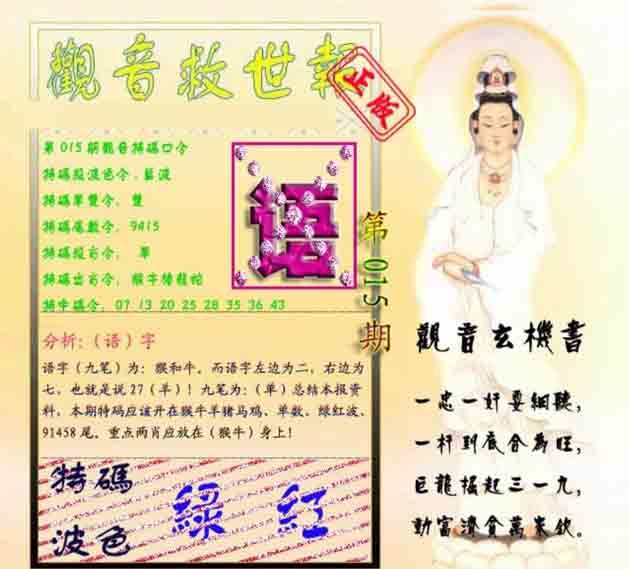 觀音救世報
正版
第015期觀音特碼口令
特碼級波色令:藍波
特碼單雙令:雙
特碼尾數令:9415
特碼级肖令: 單
特碼出肖令:猴牛猪龍蛇
特中碼令:07 13 20 25 28 35 36 43
语
第015期
分析:(语)字
语字(九笔)为:猴和牛。而语字左边为二,右边为
七,也就是说27(羊)!九笔为:(单)总结本报资
料,本期特码应该开在猴牛羊猪马鸡、单数、绿红波、
91458尾。重点两肖应放在(猴牛)身上!
特碼
波色
綠 红
觀音玄機書
一忠一奸要細聽,
一杆到底合為旺,
巨龍掘起三一九,
勤富濟貧萬眾欽。